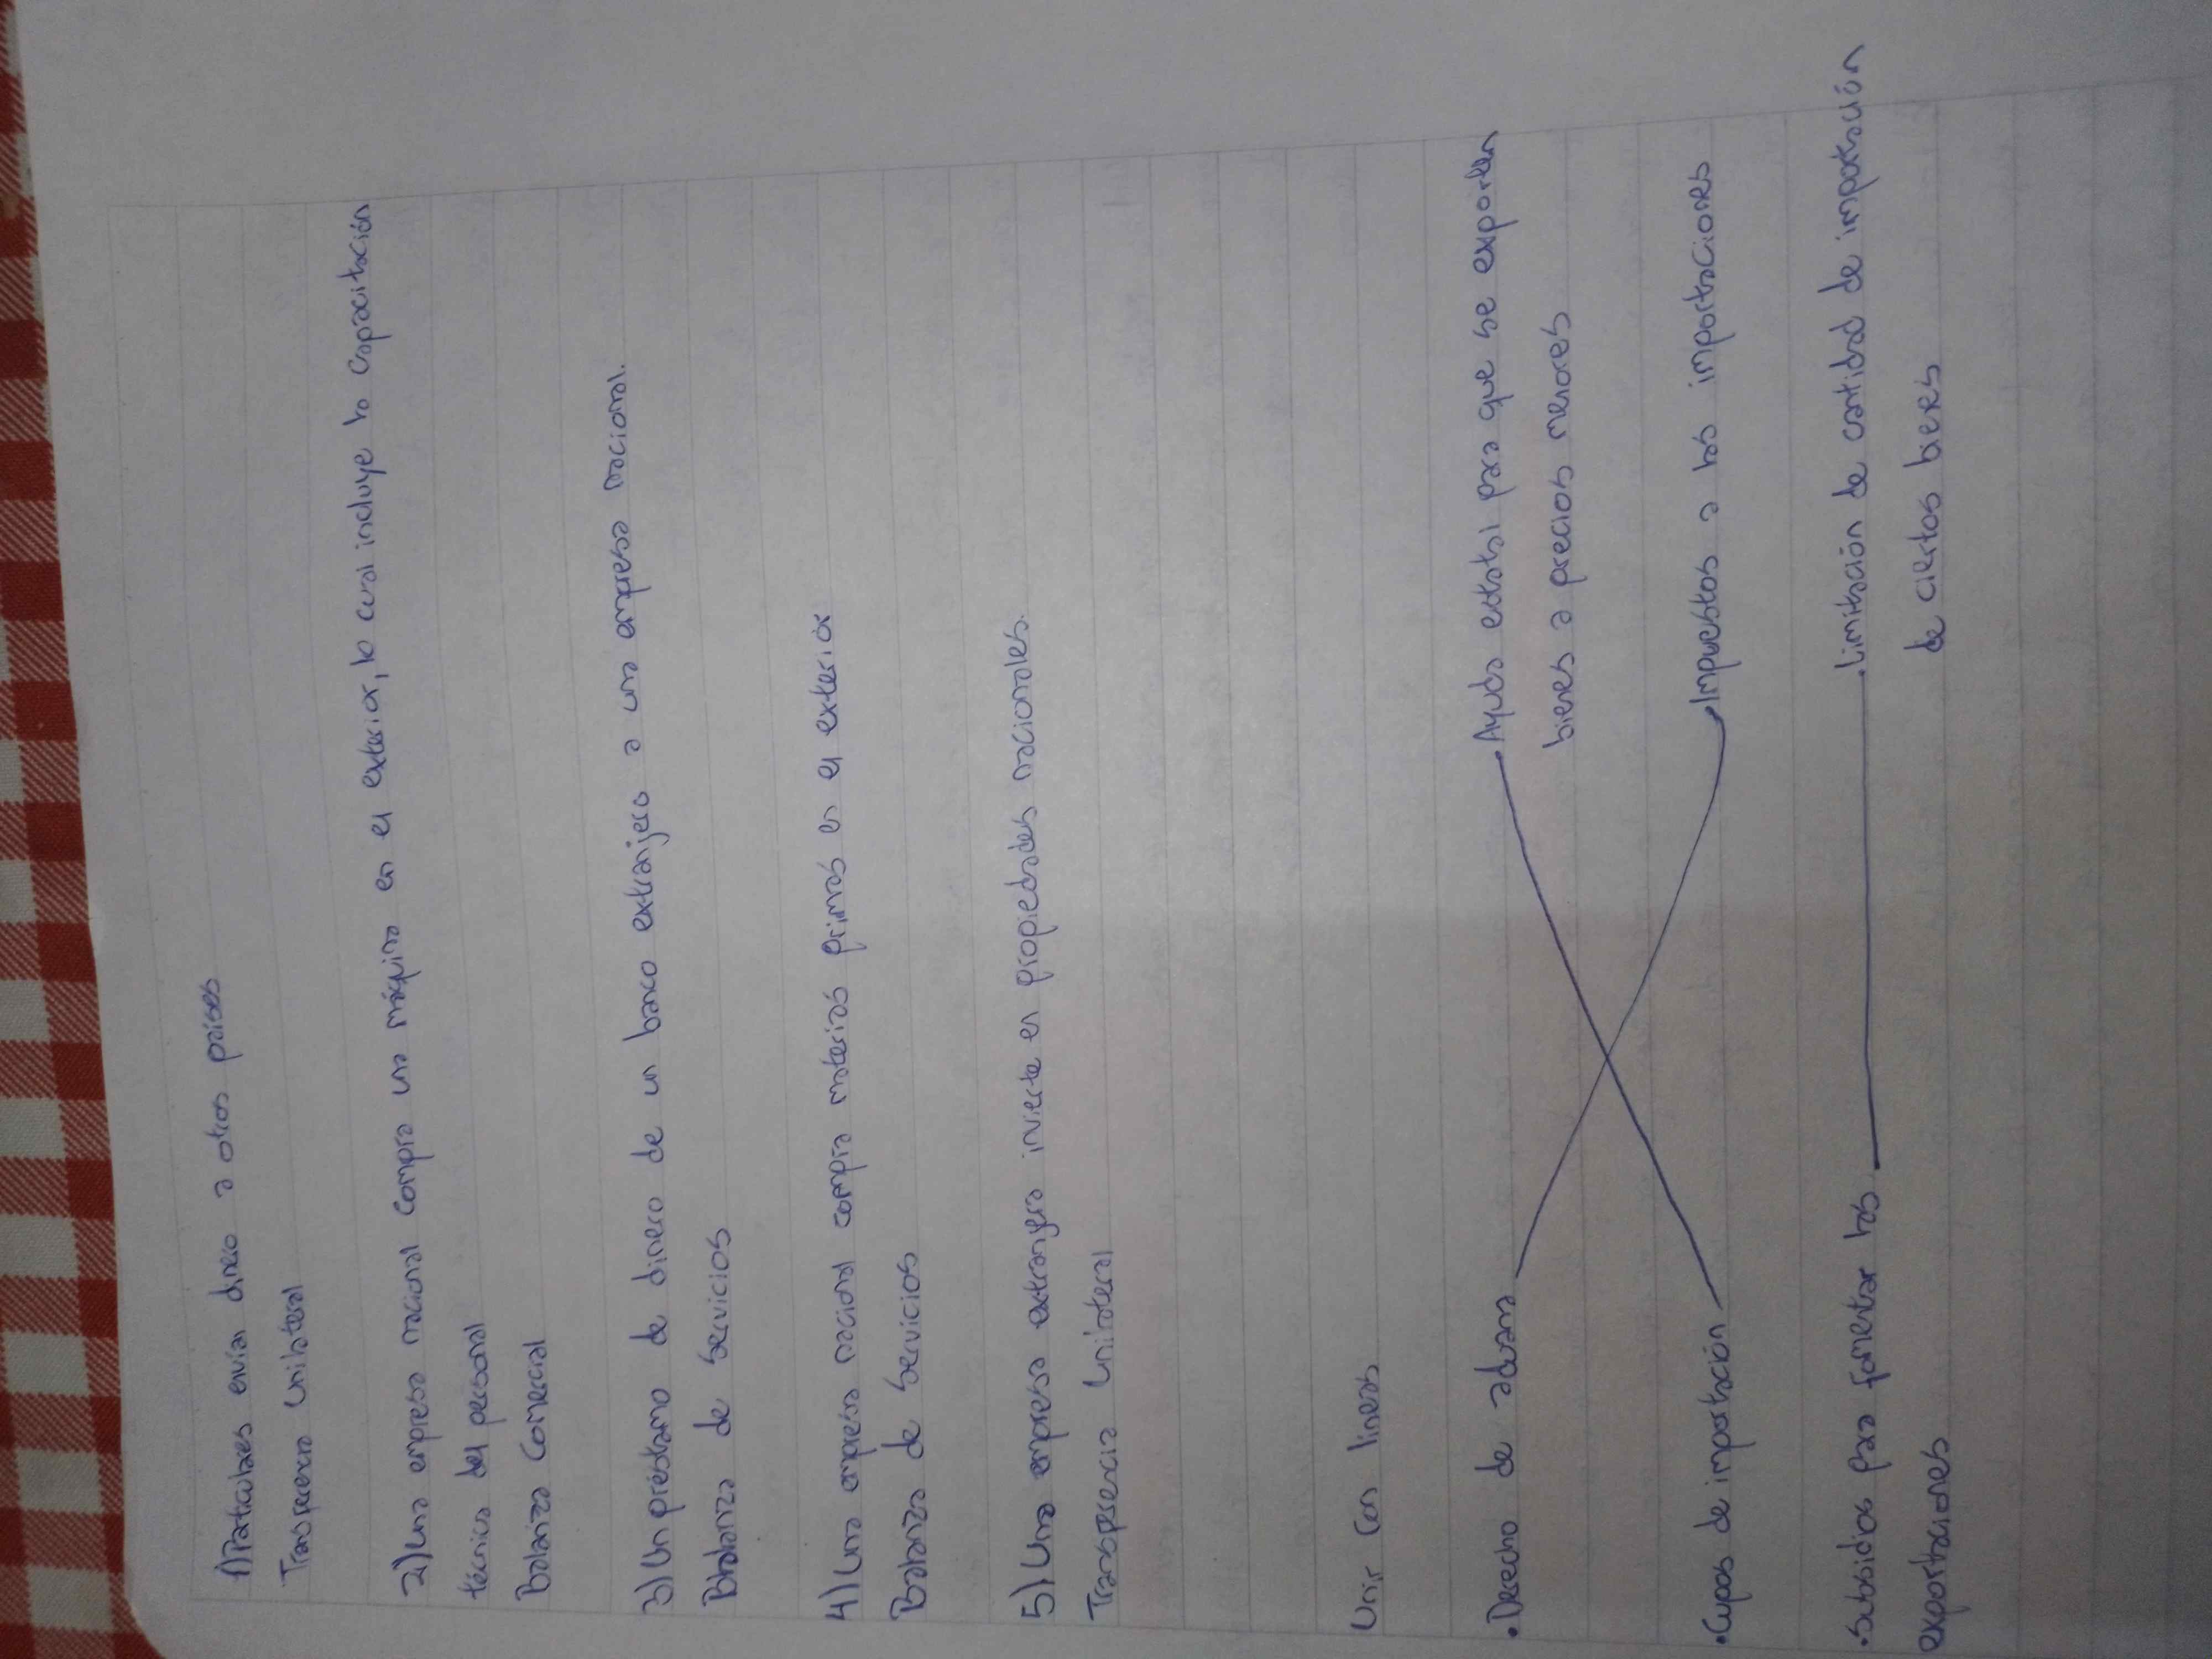 1) Particulares envian dinero a otros paises
Trasferencia Unilateral
2) Una empresa nacional compra una máquina en el exterior, lo cual incluye la capacitación
técnica del personal
Balanza Comercial
3) Un préstamo de dinero de un banco extranjero a una empresa nacional.
Balanza de Servicios
4) Una empresa nacional compra materias primas en el exterior
Balanza de Servicios
5) Una empresa extranjera invierte en propiedades nacionales.
Trasferencia Unilateral
Unir con lineas
• Derecho de aduana
• Ayuda estatal para que se exporten
bienes a precios menores
• Cupos de importación
• Impuestos a las importaciones
• Subsidios para fomentar las
exportaciones
• Limitación de cantidad de importación
de ciertos bienes